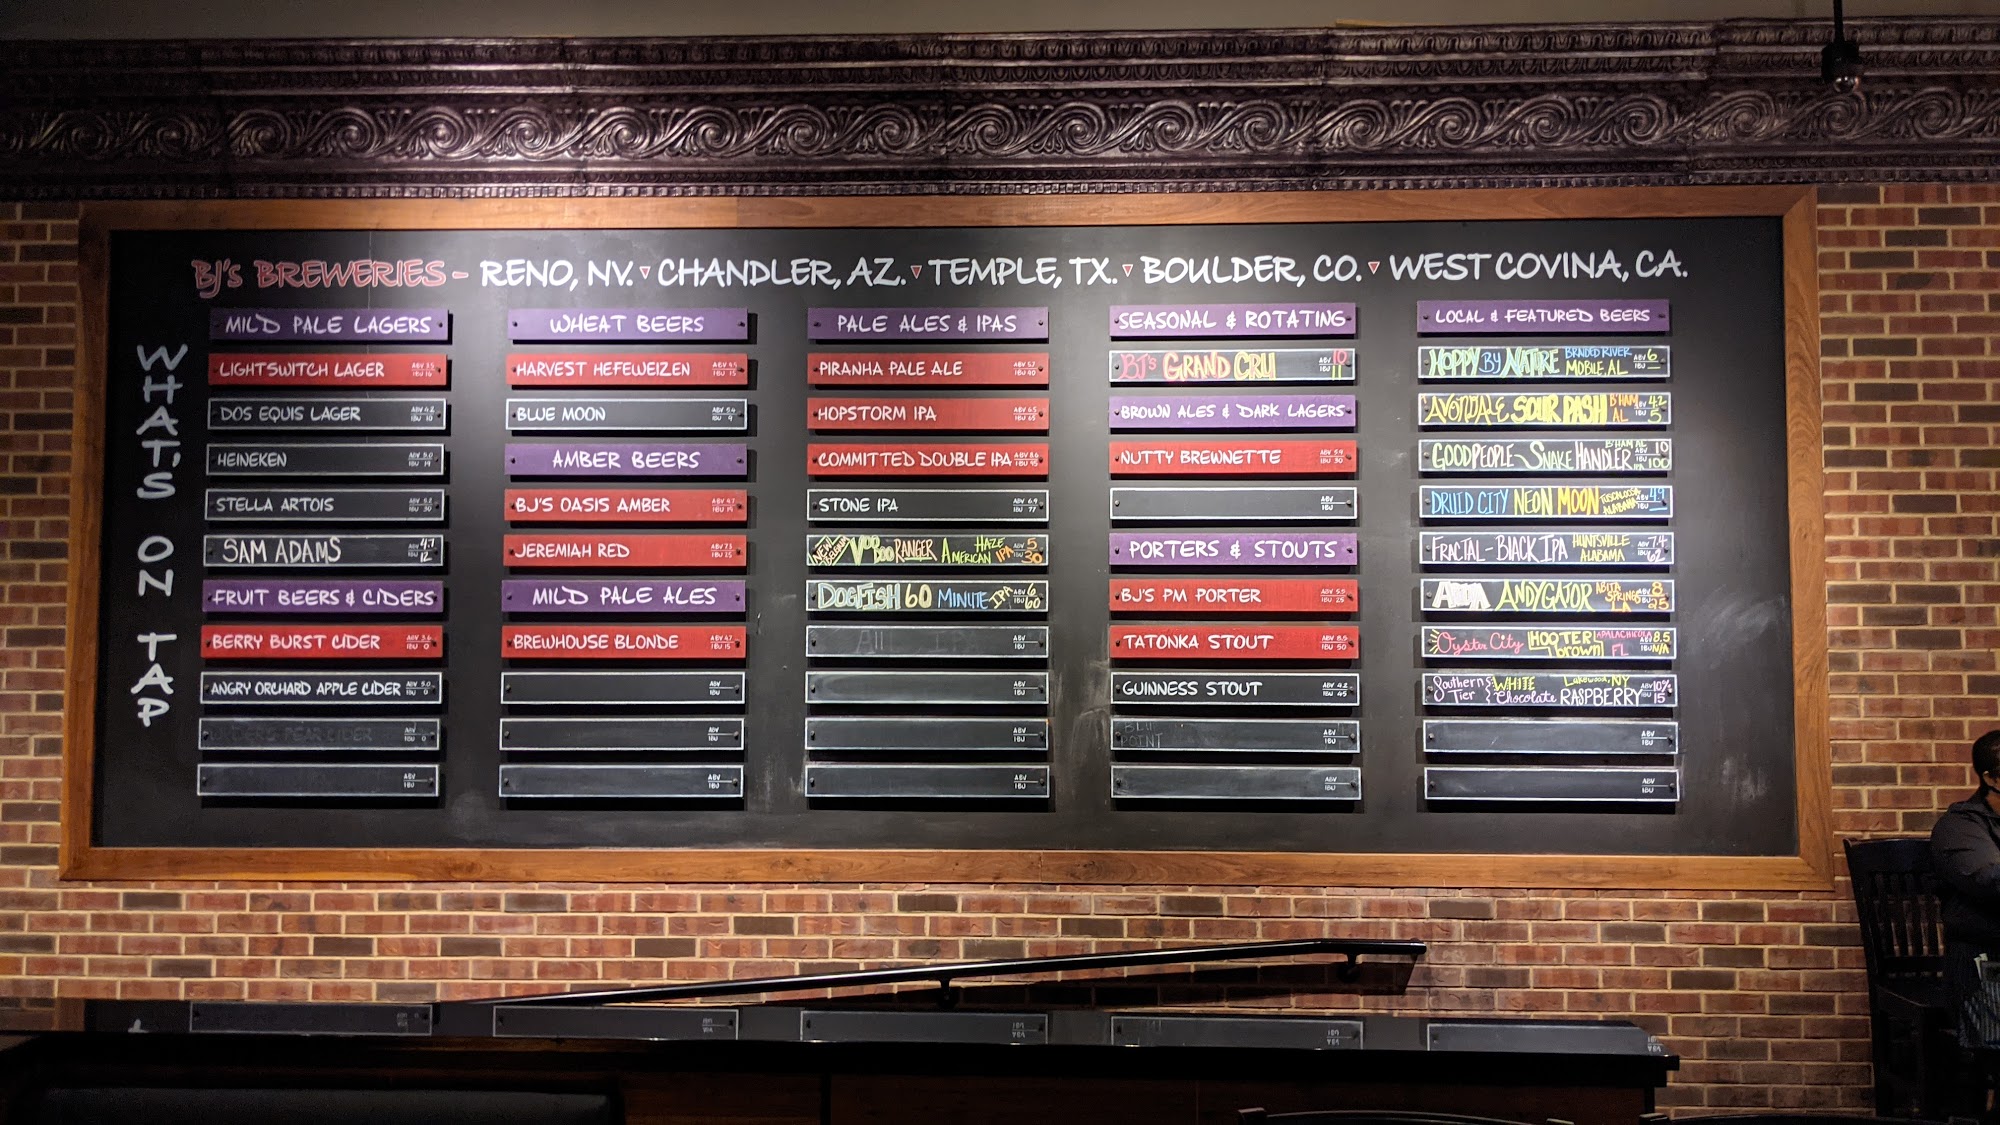 BJ's BREWERIES - RENO, NV. ▼ CHANDLER, AZ. ▼ TEMPLE, TX. ▼ BOULDER, CO. ▼ WEST COVINA, CA.
WHAT'S ON TAP
MILD PALE LAGERS
LIGHTSWITCH LAGER ABV 3.5 IBU 16
DOS EQUIS LAGER ABV 4.2 IBU 10
HEINEKEN ABV 5.0 IBU 19
STELLA ARTOIS ABV 5.2 IBU 30
SAM ADAMS ABV 4.7 IBU 12
FRUIT BEERS & CIDERS
BERRY BURST CIDER IBU 0
ANGRY ORCHARD APPLE CIDER ABV 5.0 IBU 0
PEAR CIDER ABV IBU 0
ABV IBU
WHEAT BEERS
HARVEST HEFEWEIZEN ABV 4.9 IBU 15
BLUE MOON ABV 5.4 IBU 9
AMBER BEERS
BJ'S OASIS AMBER ABV 4.7 IBU 19
JEREMIAH RED ABV 7.3 IBU 25
MILD PALE ALES
BREWHOUSE BLONDE ABV 4.7 IBU 15
ABV IBU
ABV IBU
ABV IBU
PALE ALES & IPAS
PIRANHA PALE ALE ABV 5.7 IBU 40
HOPSTORM IPA ABV 6.5 IBU 65
COMMITTED DOUBLE IPA ABV 8.6 IBU 95
STONE IPA ABV 6.9 IBU 77
NEW BELGIUM VOODOO RANGER AMERICAN HAZE IPA ABV 5 IBU 30
DOGFISH 60 MINUTE IPA ABV 6 IBU 60
All IP ABV IBU
ABV IBU
ABV IBU
ABV IBU
SEASONAL & ROTATING
BJ's GRAND CRU ABV 10 IBU 11
BROWN ALES & DARK LAGERS
NUTTY BREWNETTE ABV 5.9 IBU 30
ABV IBU
PORTERS & STOUTS
BJ'S PM PORTER ABV 5.5 IBU 25
TATONKA STOUT ABV 8.5 IBU 50
GUINNESS STOUT ABV 4.2 IBU 45
BLUE POINT ABV IBU
ABV IBU
LOCAL & FEATURED BEERS
HOPPY BY NATURE BRAIDED RIVER MOBILE, AL ABV 6 IBU
AVONDALE SOUR PASH B'HAM AL ABV 4.2 IBU 5
GOODPEOPLE - SNAKE HANDLER B'HAM AL ABV 10 IBU 100
DRUID CITY NEON MOON TUSCALOOSA ALABAMA ABV 4.9 IBU
FRACTAL - BLACK IPA HUNTSVILLE, ALABAMA ABV 7.4 IBU 62
ABITA ANDYGATOR ABITA SPRINGS LA ABV 8 IBU 25
Oyster City HOOTER brown APALACHICOLA FL ABV 8.5 IBU N/A
Southern Tier WHITE Chocolate RASPBERRY Lakewood, NY ABV 10% IBU 15
ABV IBU
ABV IBU